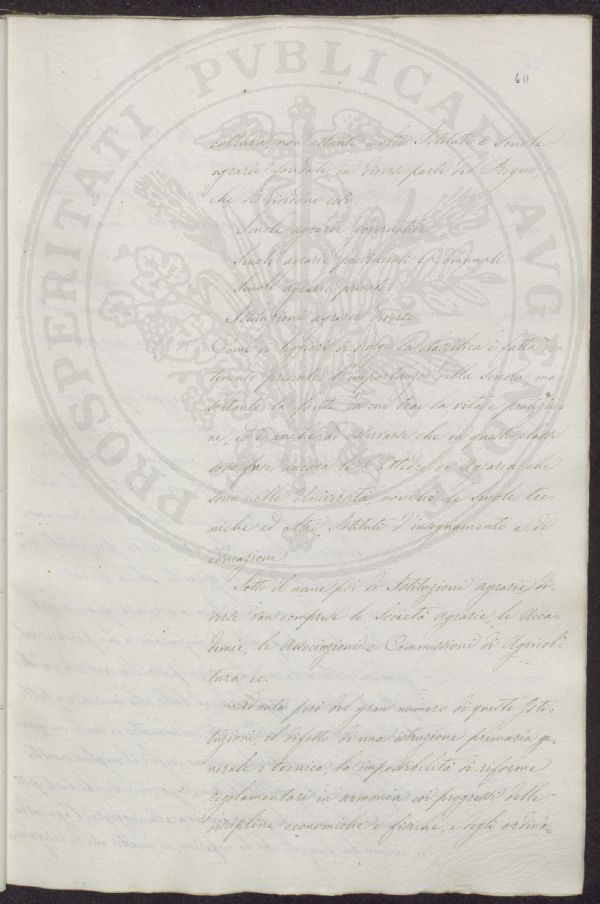 40
coltura, non ostanti molti Istituti e Scuole
agrarie fondate in diverse parti del Regno,
che si dividono così:
Scuole agrarie Governative
Scuole agrarie provinciali e Comunali
Scuole agrarie private
Istituzioni agrarie diverse.
Come di leggieri si scorge la classifica è fatta
tenendo presenti l'importanza della Scuola, ma
soltanto la fonte da cui trae la vita e protezio-
ne, ed è anche ad osservarsi che in queste classi
sono fuse ancora le Cattedre di Agraria che
sono nelle Università, nonchè le Scuole tec-
niche ed altri Istituti d'insegnamento e di
educazione.
Sotto il nome poi di Istituzioni agrarie di-
verse van comprese le Società agrarie, le Acca-
demie, le Associazioni e Commissioni di Agricol-
tura ec.
Ad onta però del gran numero di queste Isti-
tuzioni il difetto di una istruzione primaria ge-
nerale e tecnica, la impossibilità di riforme
regolamentari in armonia coi progressi delle
discipline economiche e fisiche, e degli ordina-
PROSPERITATI PVBLICAE AVGENDAE